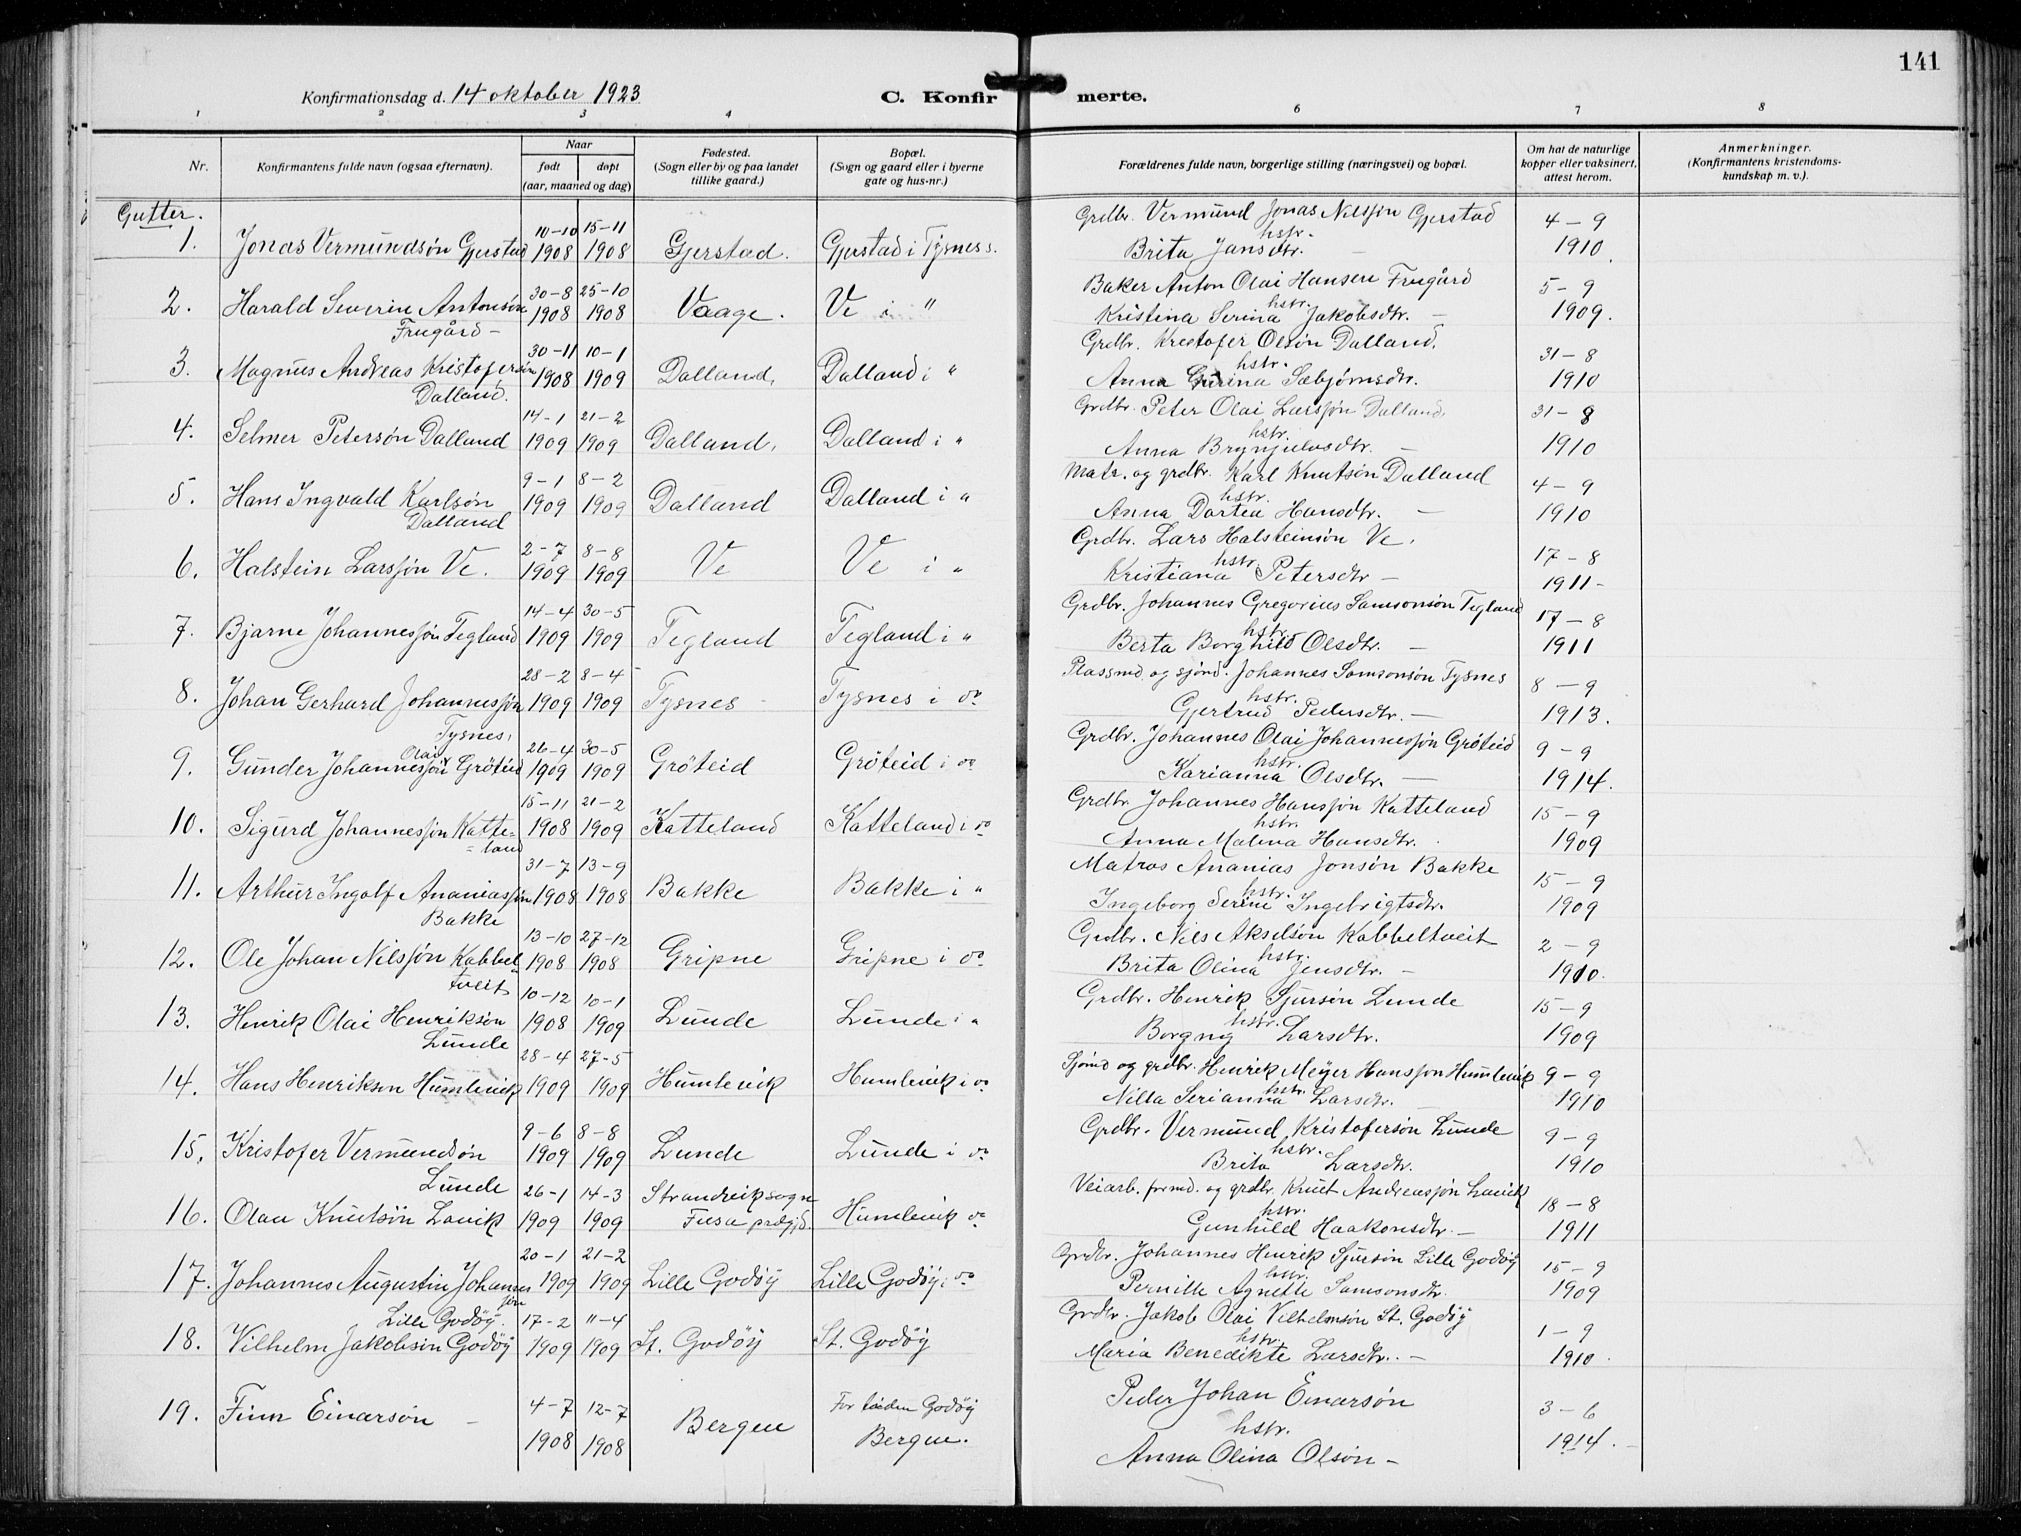 141
Konfirmationsdag d. 14 oktober 1923
C. Konfirmerte.
1 2 3 4 5 6 7 8
Nr.
Konfirmantens fulde navn (ogsaa efternavn).
Naar
født døpt
(aar, maaned og dag)
Fødested.
(Sogn eller by og paa landet
tillike gaard.)
Bopæl.
(Sogn og gaard eller i byerne
gate og hus-nr.)
Forældrenes fulde navn, borgerlige stilling (næringsvei) og bopæl.
Om hat de naturlige
kopper eller vaksinert,
attest herom.
Anmerkninger.
(Konfirmantens kristendoms-
kundskap m. v.).
Gutter.
10-10 15-11 Grdbr. Vermund Jonas Nilssøn Gjerstad 4-9
1. Jonas Vermundsøn Gjerstad 1908 1908 Gjerstad. Gjerstad i Tysnes s. hstr. Brita Jansdtr. — 1910.
30-8 25-10 Baker Anton Olai Hansen Frugård 5-9
2. Harald Severin Antonsøn 1908 1908 Vaage. Ve i " hstr. Kristina Serina Jakobsdtr. — 1909.
Frugård —
30-11 10-1 Grdbr. Kristofer Olsøn Dalland. 31-8
3. Magnus Andreas Kristofersøn 1908 1909 Dalland, Dalland i " hstr. Anna Gurina Sæbjørnsdtr. 1910
Dalland.
14-1 21-2 Grdbr. Peter Olai Larssøn Dalland, 31-8
4. Selmer Petersøn Dalland 1909 1909 Dalland, Dalland i " hstr. Anna Brynjulvsdtr. — 1910
9-1 8-2 Matr. og grdbr. Karl Knutsøn Dalland 4-9
5. Hans Ingvald Karlsøn 1909 1909 Dalland Dalland i " hstr. Anna Dortea Hansdtr. — 1910
Dalland
2-7 8-8 Grdbr. Lars Halsteinsøn Ve. 17-8
6. Halstein Larssøn Ve. 1909 1909 Ve Ve i " hstr. Kristiana Petersdtr — 1911-
14-4 30-5 Grdbr. Johannes Gregorius Samsonsøn Tegland 17-8
7. Bjarne Johannessøn Tegland 1909 1909 Tegland Tegland i " hstr. Berta Borghild Olsdtr. — 1911
28-2 8-4 Plassmd. og sjømd. Johannes Samsonsøn Tysnes 8-9
8. Johan Gerhard Johannessøn 1909 1909 Tysnes Tysnes i do hstr. Gjertrud Pedersdtr. — 1913.
Tysnes.
26-4 30-5 Grdbr. Johannes Olai Johannessøn Grøteid 9-9
9. Gunder Olai Johannessøn Grøteid 1909 1909 Grøteid Grøteid i do hstr. Karianna Olsdtr. — 1914.
15-11 21-2 Grdbr. Johannes Hanssøn Katteland 15-9
10. Sigurd Johannessøn Katte= 1908 1909 Katteland Katteland i do hstr. Anna Malina Hansdtr. 1909
=land
31-7 13-9 Matros Ananias Jonsøn Bakke 15-9
11. Arthur Ingolf Ananiassøn 1908 1908 Bakke Bakke i " hstr. Ingeborg Serine Ingebrigtsdtr. 1909
Bakke
13-10 27-12 Grdbr. Nils Akselsøn Kabbeltveit 2-9
12. Ole Johan Nilssøn Kabbel= 1908 1908 Gripne Gripne i do hstr. Brita Olina Jensdtr. — 1910.
tveit
10-12 10-1 Grdbr. Henrik Sjursøn Lunde 15-9
13. Henrik Olai Henriksøn 1908 1909 Lunde Lunde i " hstr. Borgny Larsdtr. 1909
Lunde
28-4 27-5 Sjømd og grdbr. Henrik Meyer Hanssøn Humlevik 9-9
14. Hans Henriksøn Humlevik 1909 1909 Humlevik Humlevik i do hstr. Nilla Serianna Larsdtr. — 1910
9-6 8-8 Grdbr. Vermund Kristofersøn Lunde 9-9
15. Kristofer Vermundsøn 1909 1909 Lunde Lunde i do hstr. Brita Larsdtr. 1910
Lunde
26-1 14-3 Strandvik sogn Veiarb. formd. og grdbr. Knut Andreassøn Lavik 18-8
16. Olav Knutsøn Lavik 1909 1909 Fusa prdgjd. Humlevik do hstr. Gunhild Haakonsdtr. — 1911
20-1 21-2 Grdbr. Johannes Henrik Sjursøn Lille Godøy 15-9
17. Johannes Augustin Johannes 1909 1909 Lille Godøy Lille Godøy i do hstr. Pernille Agnette Samsonsdtr. 1909
søn
Lille Godøy. 17-2 11-4 Grdbr. Jakob Olai Vilhelmsøn St. Godøy 1-9
18. Vilhelm Jakobsøn Godøy 1909 1909 St. Godøy St. Godøy hstr. Maria Benedikte Larsdtr. — 1910.
4-7 12-7 For tiden Godøy Peder Johan Einarsøn 3-6
19. Finn Einarsøn — 1908 1908 Bergen Bergen. hstr. Anna Olina Olsøn — 1914.